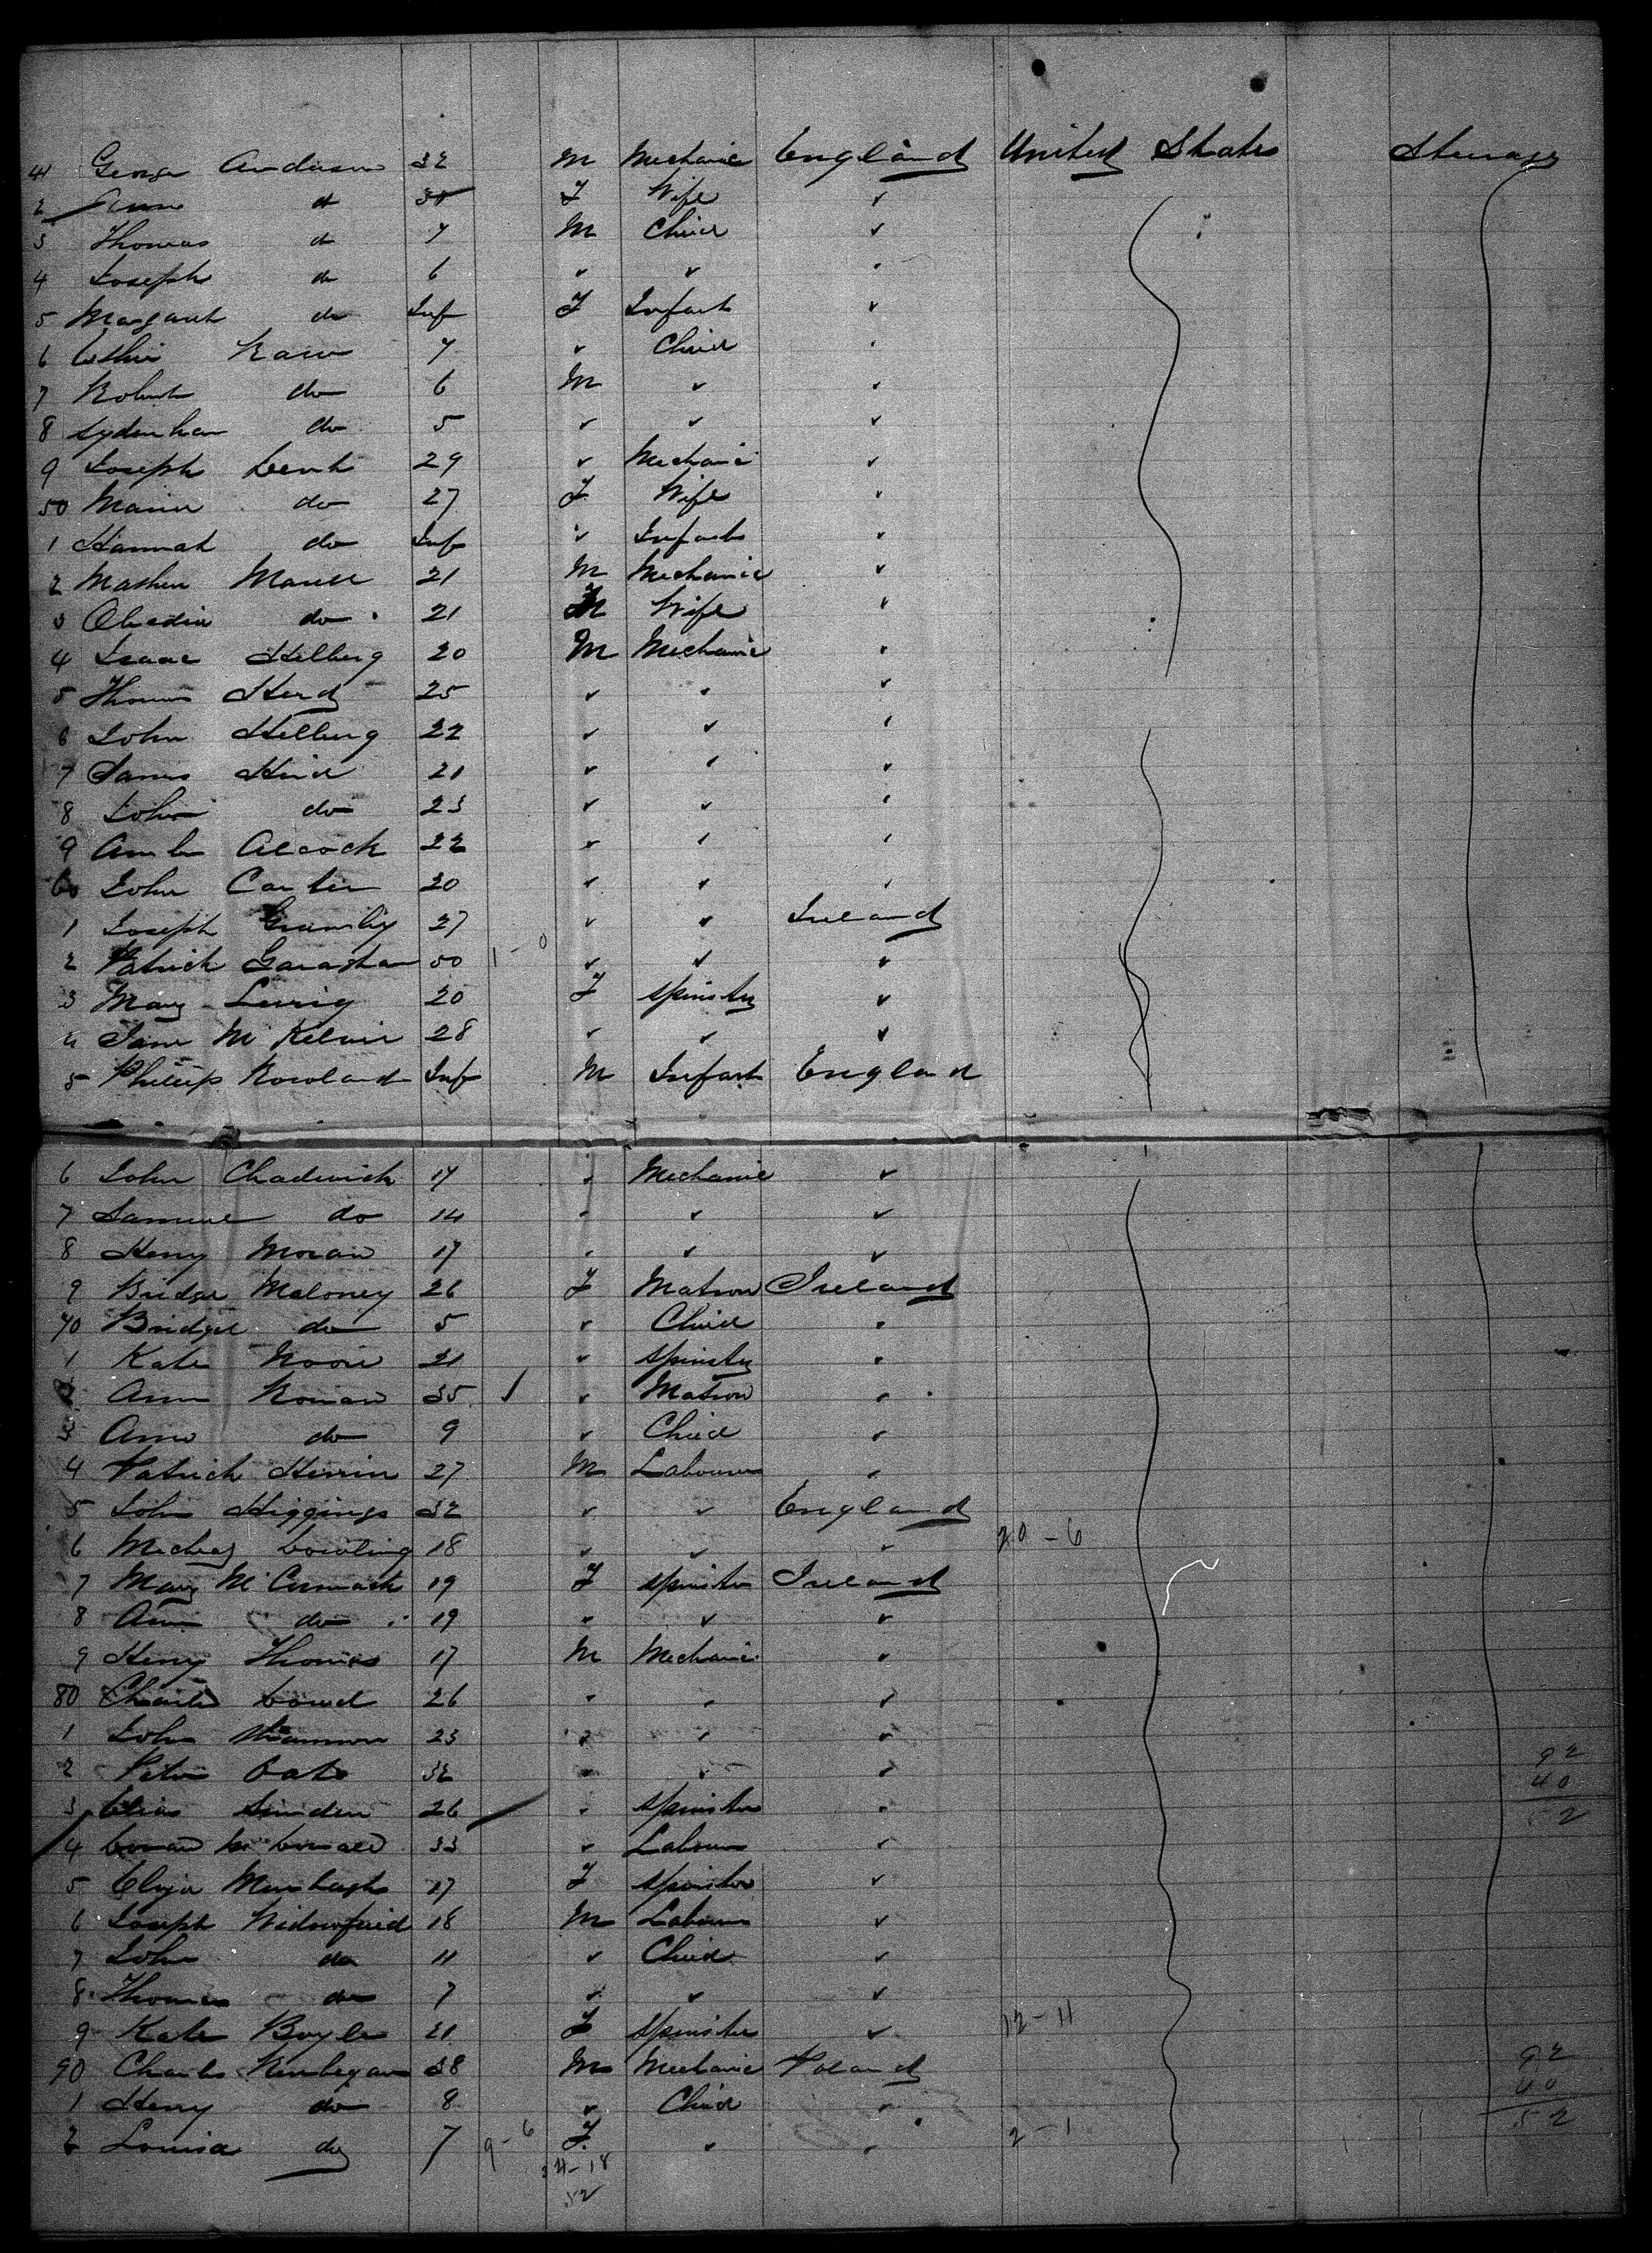 41 George Anderson 32 M Mechanic England United States Steerage
2 Ann do 30 F Wife "
3 Thomas do 7 M Child "
4 Joseph do 6 " " "
5 Margaret do Inf F Infant "
6 7 " Child "
7 Robert do 6 M " "
8 Sydenham do 5 " " "
9 Joseph Dent 29 " Mechanic "
50 Maria do 27 F Wife "
1 Hannah do Inf " Infant "
2 Mathew 21 M Mechanic "
3 do 21 F Wife "
4 Isaac Hilberg 20 M Mechanic "
5 Thomas Herd 25 " " "
6 John Hilberg 22 " " "
7 James Hird 21 " " "
8 John do 23 " " "
9 Alcock 22 " " "
60 John Carter 20 " " "
1 Joseph 27 " " Ireland
2 Patrick 50 1-0 " " "
3 Mary 20 F Spinster "
4 Jane McKelvie 28 " " "
5 Phillip Rowland Inf M Infant England
6 John Chadwick 17 " Mechanic "
7 Samuel do 14 " " "
8 Henry Moran 17 " " "
9 Bridget Maloney 26 F Matron Ireland
70 Bridget do 5 " Child "
1 Kate Moore 21 " Spinster "
2 Ann Ronan 35 " Matron "
3 Ann do 9 " Child "
4 Patrick 27 M Labourer "
5 John Higgings 32 " " England
6 Dowling 18 " " " 20-6
7 Mary McCormack 19 F Spinster Ireland
8 Ann do 19 " " "
9 Henry Thomas 17 M Mechanic "
80 Charles 26 " " "
1 John Shannon 23 " " "
2 Peter 32 " " " 92
40
3 26 " Spinster " 52
4 33 " Labourer "
5 Eliza 17 F Spinster "
6 Joseph Widowfield 18 M Labourer "
7 John do 11 " Child "
8 Thomas do 7 " " "
9 Kate Boyle 21 F Spinster " 12-11
90 Charles 38 M Mechanic Poland 92
1 Henry do 8 " Child " 40
2 Louisa do 7 9-6 F " " 2-1 52
34-18
52